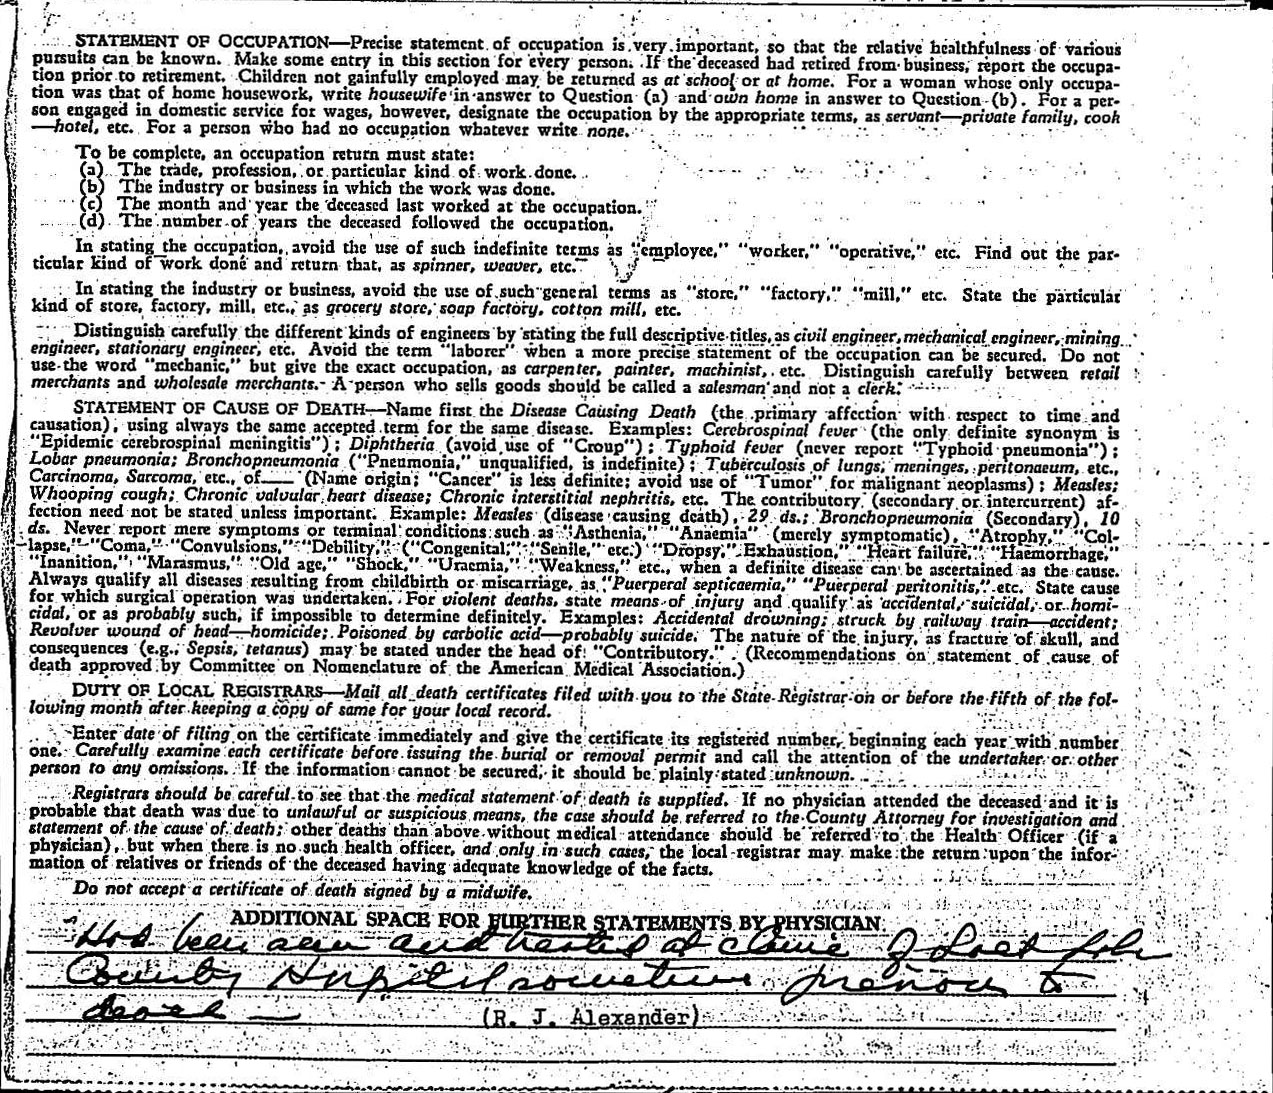 STATEMENT OF OCCUPATION—Precise statement of occupation is very important, so that the relative healthfulness of various
pursuits can be known. Make some entry in this section for every person. If the deceased had retired from business, report the occupa-
tion prior to retirement. Children not gainfully employed may be returned as at school or at home. For a woman whose only occupa-
tion was that of home housework, write housewife in answer to Question (a) and own home in answer to Question (b). For a per-
son engaged in domestic service for wages, however, designate the occupation by the appropriate terms, as servant—private family, cook
—hotel, etc. For a person who had no occupation whatever write none.
To be complete, an occupation return must state:
(a) The trade, profession, or particular kind of work done.
(b) The industry or business in which the work was done.
(c) The month and year the deceased last worked at the occupation.
(d) The number of years the deceased followed the occupation.
In stating the occupation, avoid the use of such indefinite terms as "employee," "worker," "operative," etc. Find out the par-
ticular kind of work done and return that, as spinner, weaver, etc.
In stating the industry or business, avoid the use of such general terms as "store," "factory," "mill," etc. State the particular
kind of store, factory, mill, etc., as grocery store, soap factory, cotton mill, etc.
Distinguish carefully the different kinds of engineers by stating the full descriptive titles, as civil engineer, mechanical engineer, mining
engineer, stationary engineer, etc. Avoid the term "laborer" when a more precise statement of the occupation can be secured. Do not
use the word "mechanic," but give the exact occupation, as carpenter, painter, machinist, etc. Distinguish carefully between retail
merchants and wholesale merchants. A person who sells goods should be called a salesman and not a clerk.
STATEMENT OF CAUSE OF DEATH—Name first the Disease Causing Death (the primary affection with respect to time and
causation), using always the same accepted term for the same disease. Examples: Cerebrospinal fever (the only definite synonym is
"Epidemic cerebrospinal meningitis"); Diphtheria (avoid use of "Croup"); Typhoid fever (never report "Typhoid pneumonia");
Lobar pneumonia; Bronchopneumonia ("Pneumonia," unqualified, is indefinite); Tuberculosis of lungs, meninges, peritonaeum, etc.,
Carcinoma, Sarcoma, etc., of____ (Name origin; "Cancer" is less definite; avoid use of "Tumor" for malignant neoplasms); Measles;
Whooping cough; Chronic valvular heart disease; Chronic interstitial nephritis, etc. The contributory (secondary or intercurrent) af-
fection need not be stated unless important. Example: Measles (disease causing death), 29 ds.; Bronchopneumonia (Secondary), 10
ds. Never report mere symptoms or terminal conditions such as "Asthenia," "Anaemia" (merely symptomatic), "Atrophy," "Col-
lapse," "Coma," "Convulsions," "Debility," ("Congenital," "Senile," etc.) "Dropsy," Exhaustion," "Heart failure," "Haemorrhage,"
"Inanition," "Marasmus," "Old age," "Shock," "Uraemia," "Weakness," etc., when a definite disease can be ascertained as the cause.
Always qualify all diseases resulting from childbirth or miscarriage, as "Puerperal septicaemia," "Puerperal peritonitis," etc. State cause
for which surgical operation was undertaken. For violent deaths, state means of injury and qualify as accidental, suicidal, or homi-
cidal, or as probably such, if impossible to determine definitely. Examples: Accidental drowning; struck by railway train—accident;
Revolver wound of head—homicide; Poisoned by carbolic acid—probably suicide. The nature of the injury, as fracture of skull, and
consequences (e.g., Sepsis, tetanus) may be stated under the head of "Contributory." (Recommendations on statement of cause of
death approved by Committee on Nomenclature of the American Medical Association.)
DUTY OF LOCAL REGISTRARS—Mail all death certificates filed with you to the State Registrar on or before the fifth of the fol-
lowing month after keeping a copy of same for your local record.
Enter date of filing on the certificate immediately and give the certificate its registered number, beginning each year with number
one. Carefully examine each certificate before issuing the burial or removal permit and call the attention of the undertaker or other
person to any omissions. If the information cannot be secured, it should be plainly stated unknown.
Registrars should be careful to see that the medical statement of death is supplied. If no physician attended the deceased and it is
probable that death was due to unlawful or suspicious means, the case should be referred to the County Attorney for investigation and
statement of the cause of death; other deaths than above without medical attendance should be referred to the Health Officer (if a
physician), but when there is no such health officer, and only in such cases, the local registrar may make the return upon the infor-
mation of relatives or friends of the deceased having adequate knowledge of the facts.
Do not accept a certificate of death signed by a midwife.
ADDITIONAL SPACE FOR FURTHER STATEMENTS BY PHYSICIAN
Had been seen and treated at clinic of Salt Lake
County Hospital sometime previous to
death —
(R. J. Alexander)